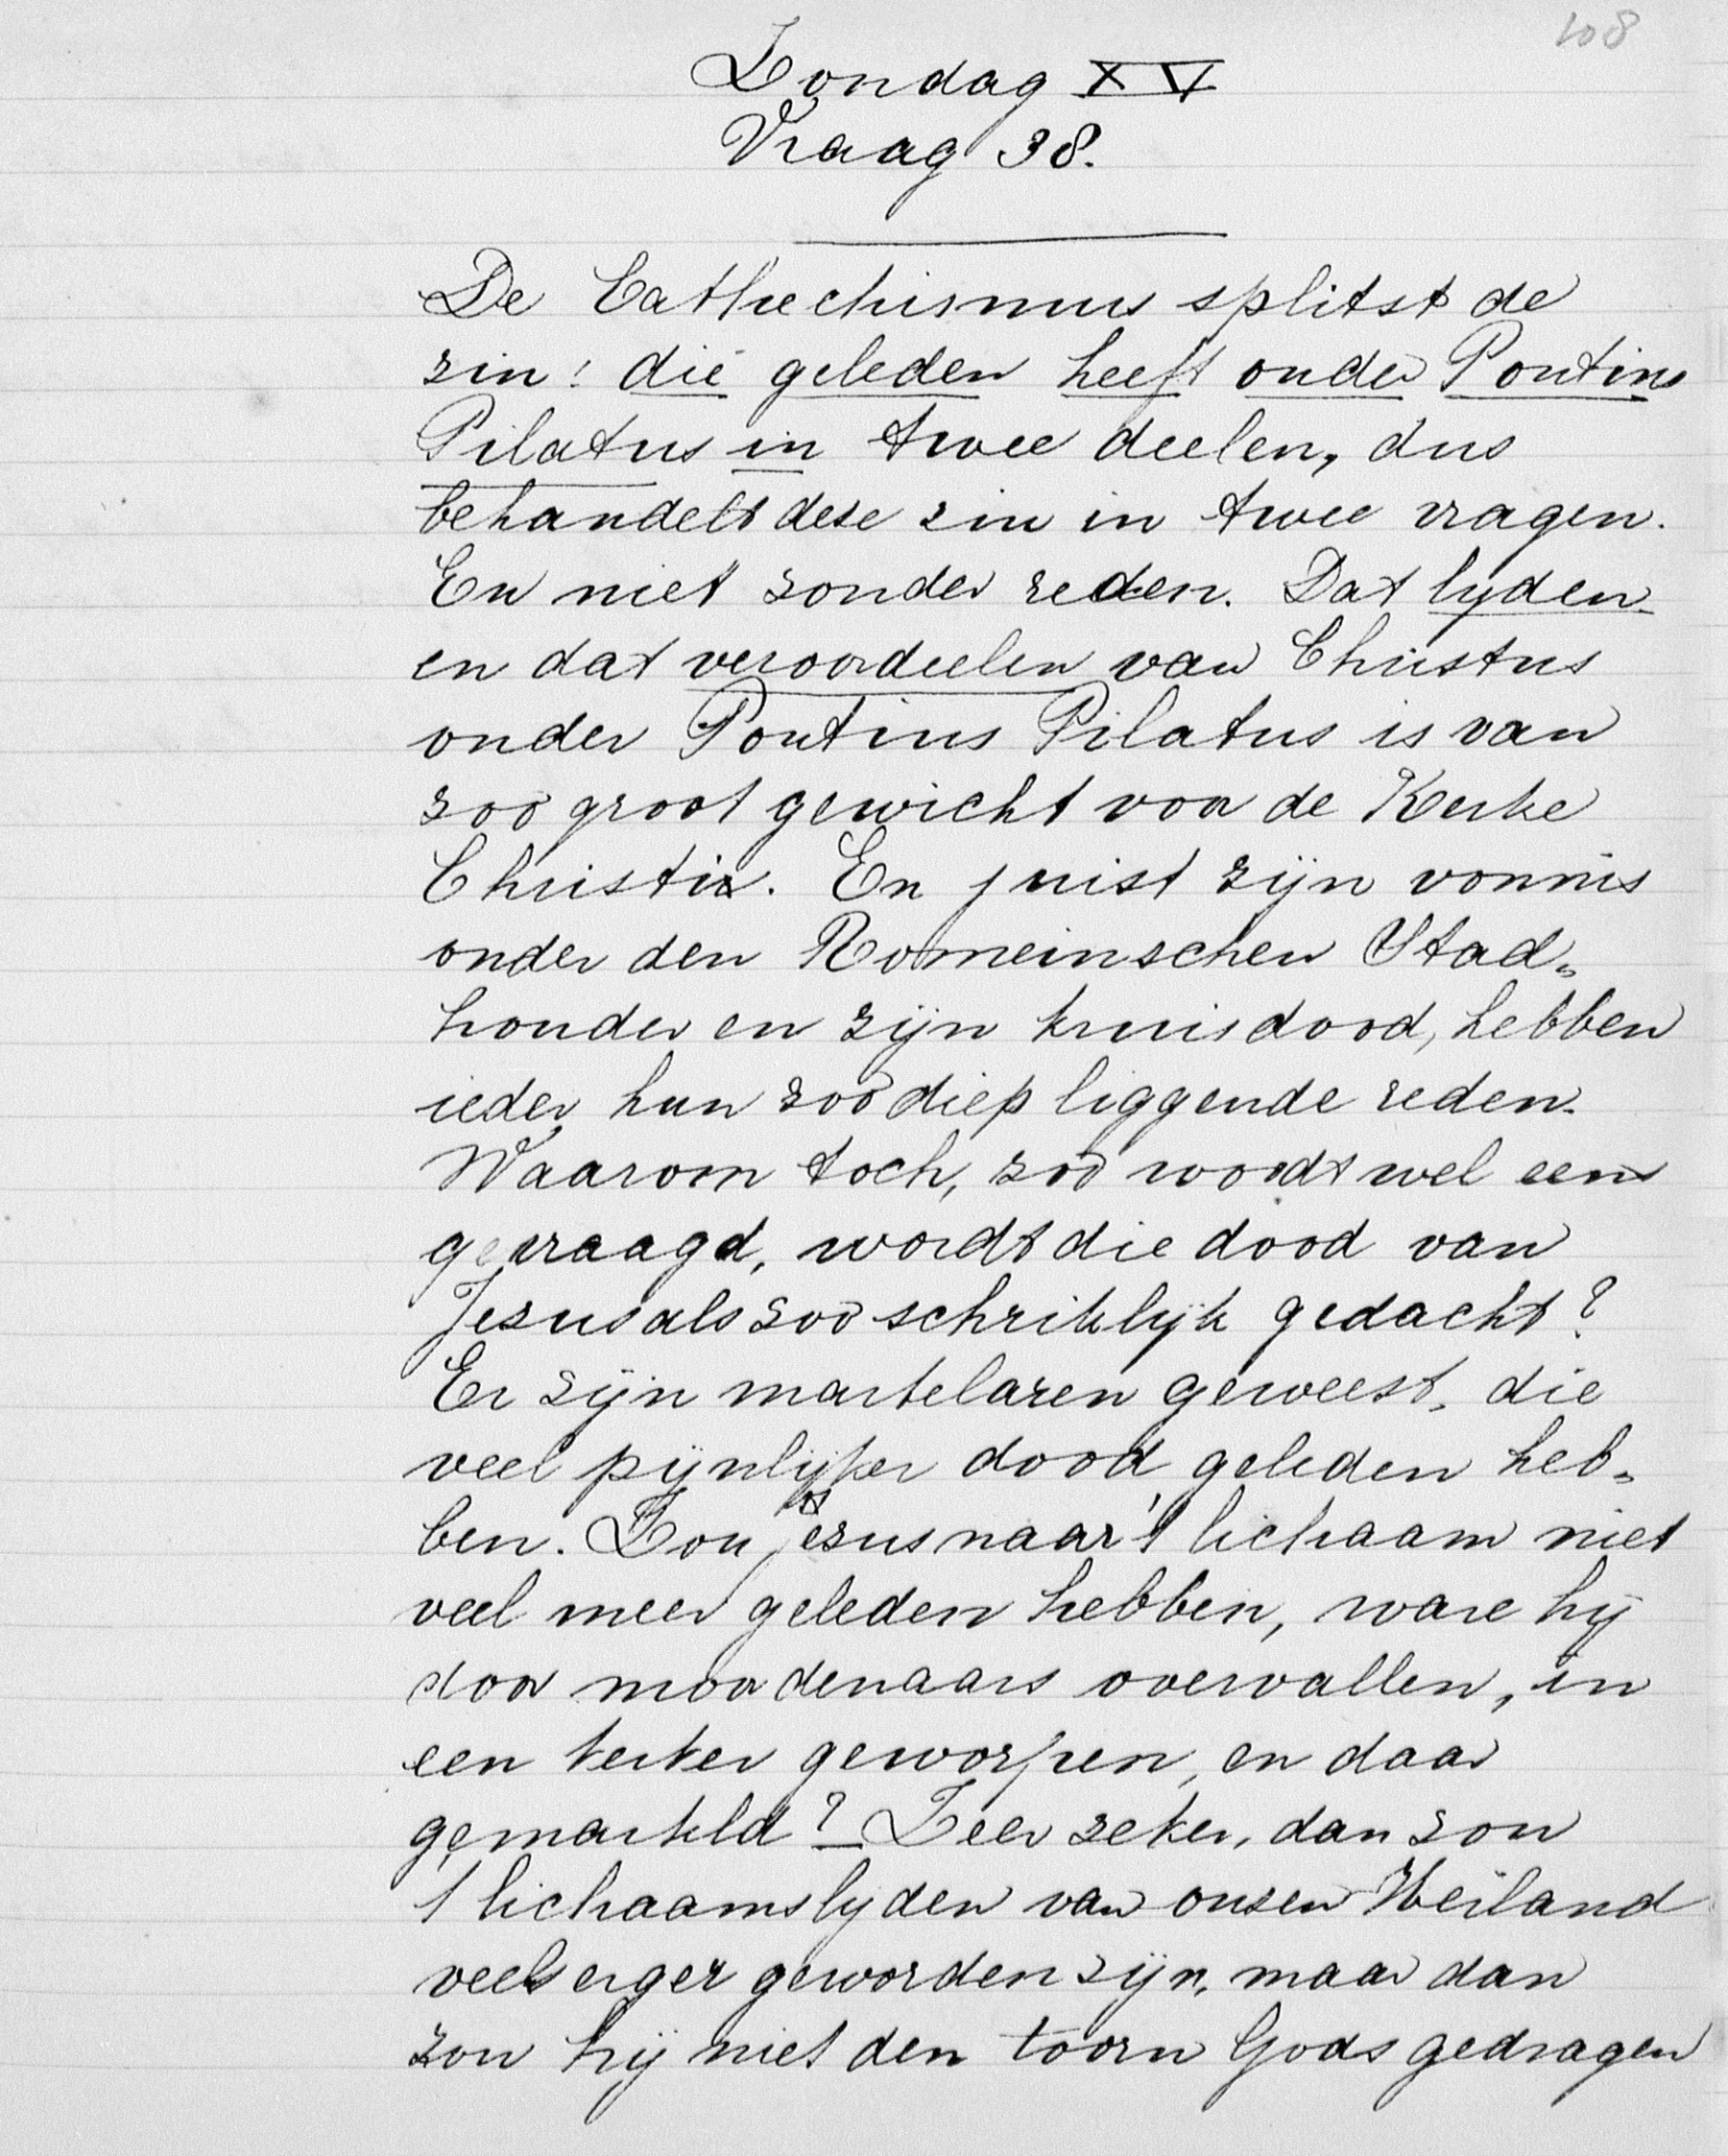 108
Zondag XV
Vraag 38.
De Cathechismus splitst de
zin: die geleden heeft onder Pontius
Pilatus in twee deelen, dus
behandelt deze zin in twee vragen.
En niet zonder reden. Dat lyden
en dat veroordeelen van Christus
onder Pontius Pilatus is van
zoo groot gewicht voor de Kerke
Christi. En juist zijn vonnis
onder den Romeinschen Stad„
houder en zijn kruisdood, hebben
ieder hun zoo diep liggende reden.
Waarom toch, zoo wordt wel eens
gevraagd, wordt die dood van
Jezus als zoo schriklijk gedacht?
Er zijn martelaren geweest, die
veel pijnlijker dood geleden heb„
ben. Zou jezus naar 't lichaam niet
veel meer geleden hebben, ware hij
door moordenaars overvallen, in
een kerker geworpen, en daar
gemarteld? Zeer zeker, dan zou
't lichaamslyden van onzen Heiland
veel erger geworden zijn, maar dan
zou hij niet den toorn Gods gedragen